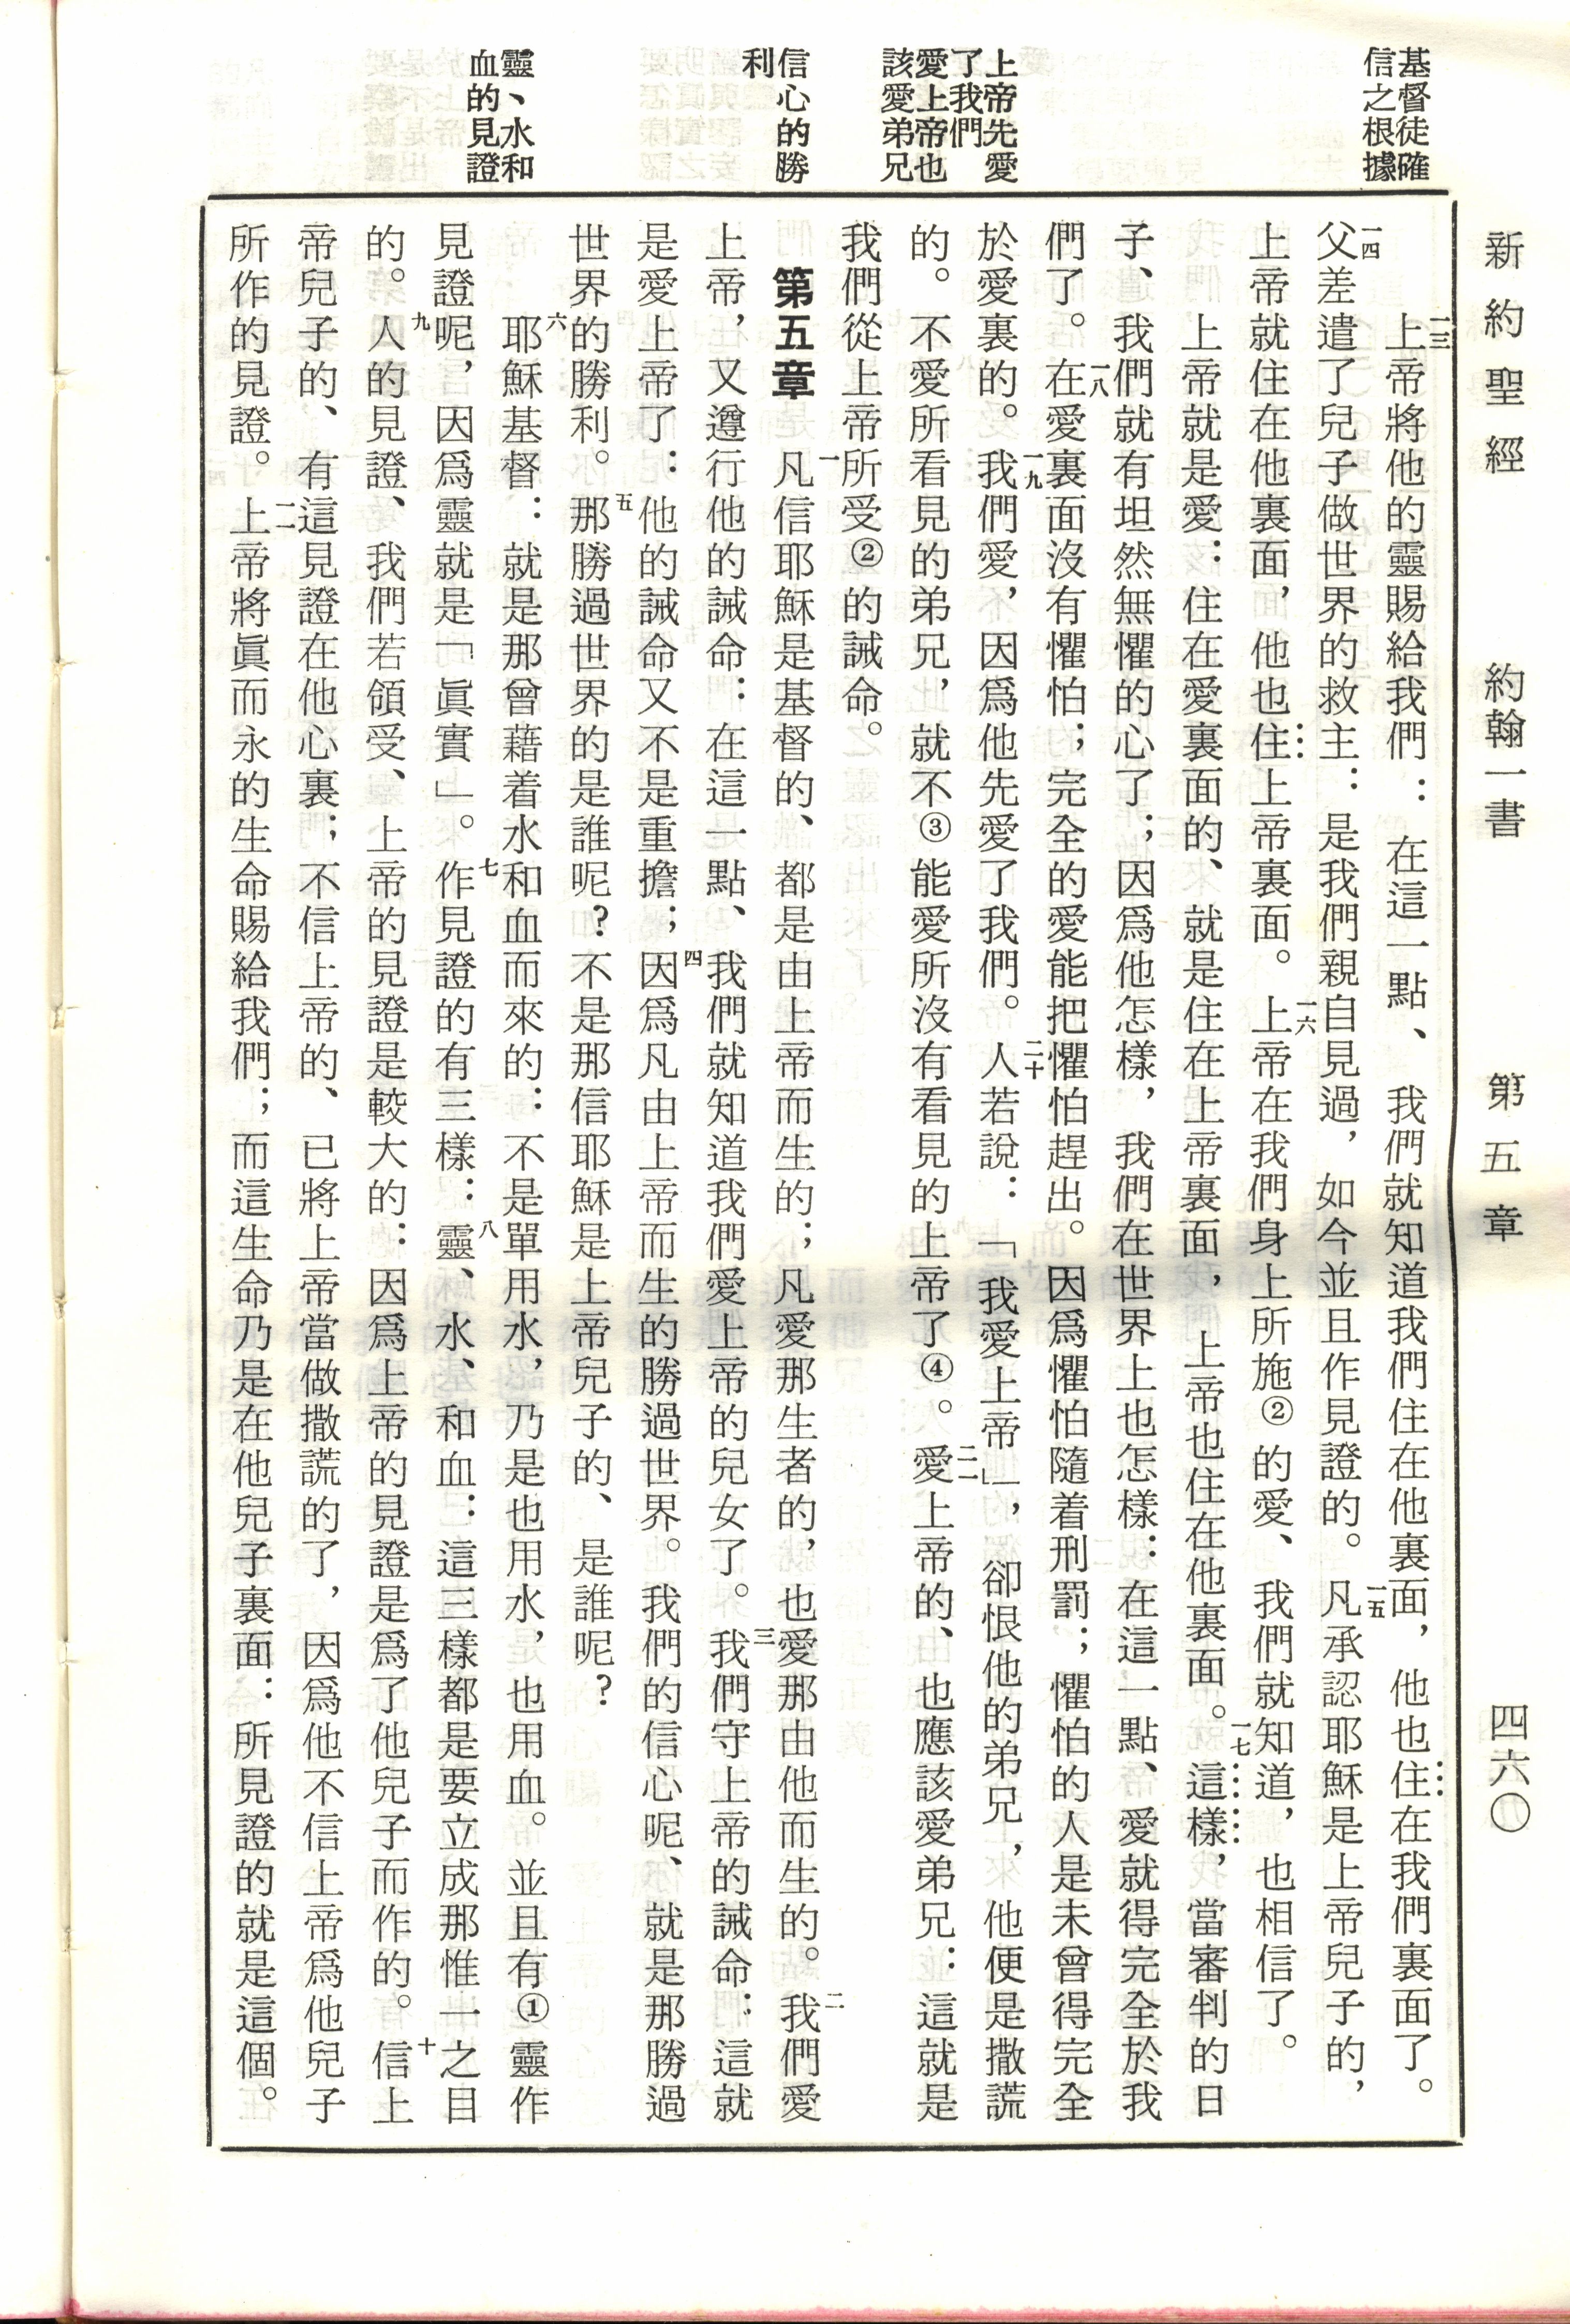 新約聖經　約翰一書　第五章　四六〇
基督徒確
信之根據
上帝先愛
了我們
愛上帝也
該愛弟兄
信心的勝
利
靈、水和
血的見證
一三上帝將他的靈賜給我們：在這一點、我們就知道我們住在他裏面，他也住在我們裏面了。
一四父差遣了兒子做世界的救主：是我們親自見過，如今並且作見證的。一五凡承認耶穌是上帝兒子的，
上帝就住在他裏面，他也住上帝裏面。一六上帝在我們身上所施②的愛、我們就知道，也相信了。
上帝就是愛：住在愛裏面的、就是住在上帝裏面，上帝也住在他裏面。一七這樣，當審判的日
子、我們就有坦然無懼的心了；因爲他怎樣，我們在世界上也怎樣：在這一點、愛就得完全於我
們了。一八在愛裏面沒有懼怕；完全的愛能把懼怕趕出。因爲懼怕隨着刑罰；懼怕的人是未曾得完全
於愛裏的。一九我們愛，因爲他先愛了我們。二十人若說：「我愛上帝」，卻恨他的弟兄，他便是撒謊
的。不愛所看見的弟兄，就不③能愛所沒有看見的上帝了④。二一愛上帝的、也應該愛弟兄：這就是
我們從上帝所受②的誡命。
第五章　一凡信耶穌是基督的、都是由上帝而生的；凡愛那生者的，也愛那由他而生的。二我們愛
上帝，又遵行他的誡命：在這一點、我們就知道我們愛上帝的兒女了。三我們守上帝的誡命：這就
是愛上帝了：他的誡命又不是重擔；四因爲凡由上帝而生的勝過世界。我們的信心呢、就是那勝過
世界的勝利。五那勝過世界的是誰呢？不是那信耶穌是上帝兒子的、是誰呢？
六耶穌基督：就是那曾藉着水和血而來的：不是單用水，乃是也用水，也用血。並且有①靈作
見證呢，因爲靈就是「眞實」。七作見證的有三樣：八靈、水、和血：這三樣都是要立成那惟一之目
的。九人的見證、我們若領受、上帝的見證是較大的：因爲上帝的見證是爲了他兒子而作的。十信上
帝兒子的、有這見證在他心裏；不信上帝的、已將上帝當做撒謊的了，因爲他不信上帝爲他兒子
所作的見證。一一上帝將眞而永的生命賜給我們；而這生命乃是在他兒子裏面：所見證的就是這個。